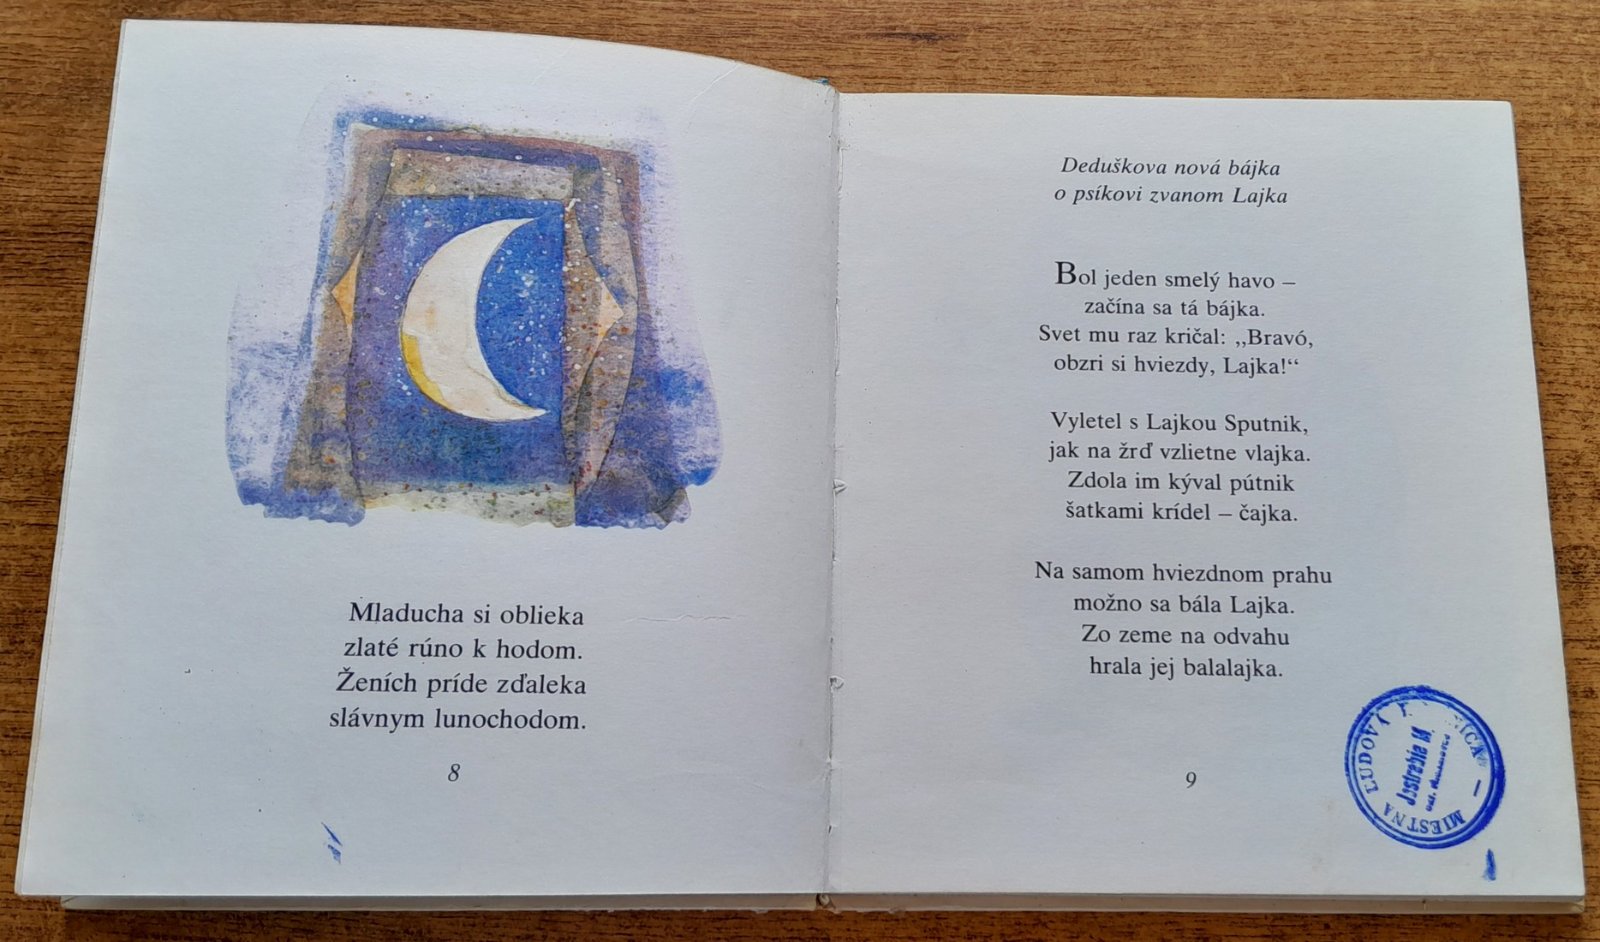 Mladucha si oblieka
zlaté rúno k hodom.
Ženích príde zďaleka
slávnym lunochodom.
8
Deduškova nová bájka
o psíkovi zvanom Lajka
Bol jeden smelý havo –
začína sa tá bájka.
Svet mu raz kričal: „Bravó,
obzri si hviezdy, Lajka!“
Vyletel s Lajkou Sputnik,
jak na žrď vzlietne vlajka.
Zdola im kýval pútnik
šatkami krídel – čajka.
Na samom hviezdnom prahu
možno sa bála Lajka.
Zo zeme na odvahu
hrala jej balalajka.
9
MIESTNA ĽUDOVÁ
Jastrabie